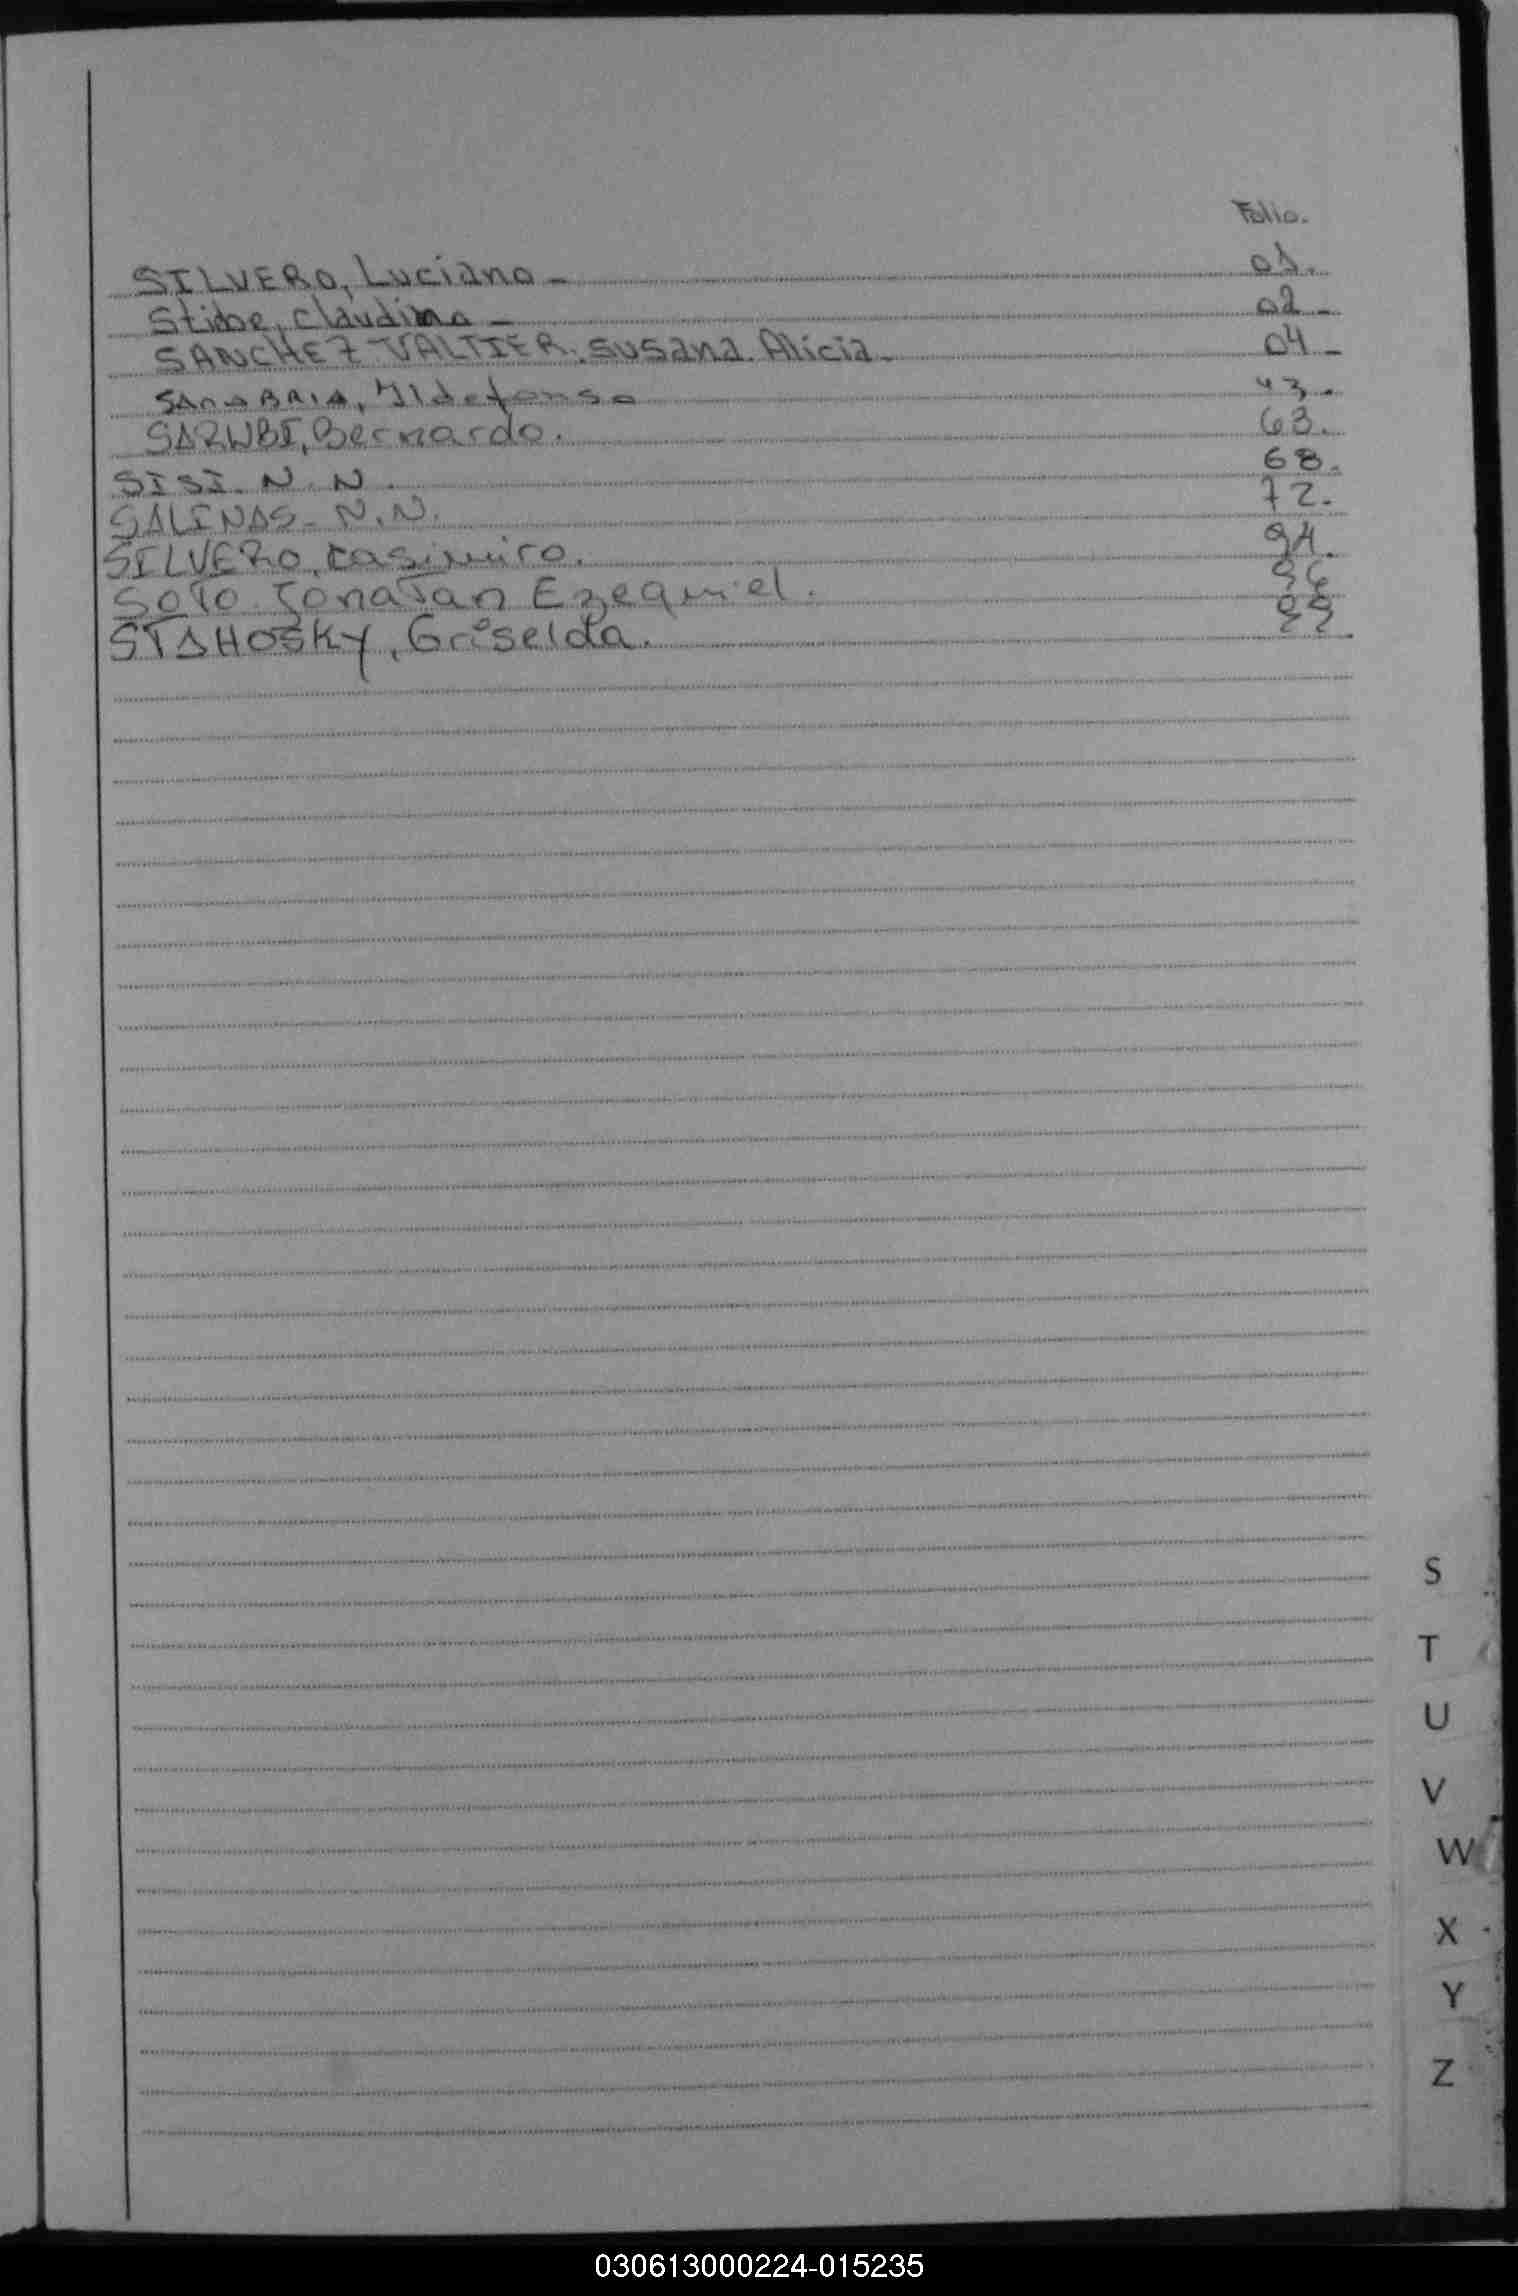 Folio.
SILVERO, Luciano - 01.
Stibe, Claudina - 02 -
SANCHEZ VALTIER. Susana. Alicia. 04 -
SANABRIA, Ildefonso 43.
SARUBI, Bernardo. 63.
SISI. N. N. 68.
SALINAS - N. N. 72.
SILVERO, Casimiro. 94.
SOTO. Jonatan Ezequiel. 96
STAHOSKY, Griselda. 99.
S
T
U
V
W
X
Y
Z
030613000224-015235